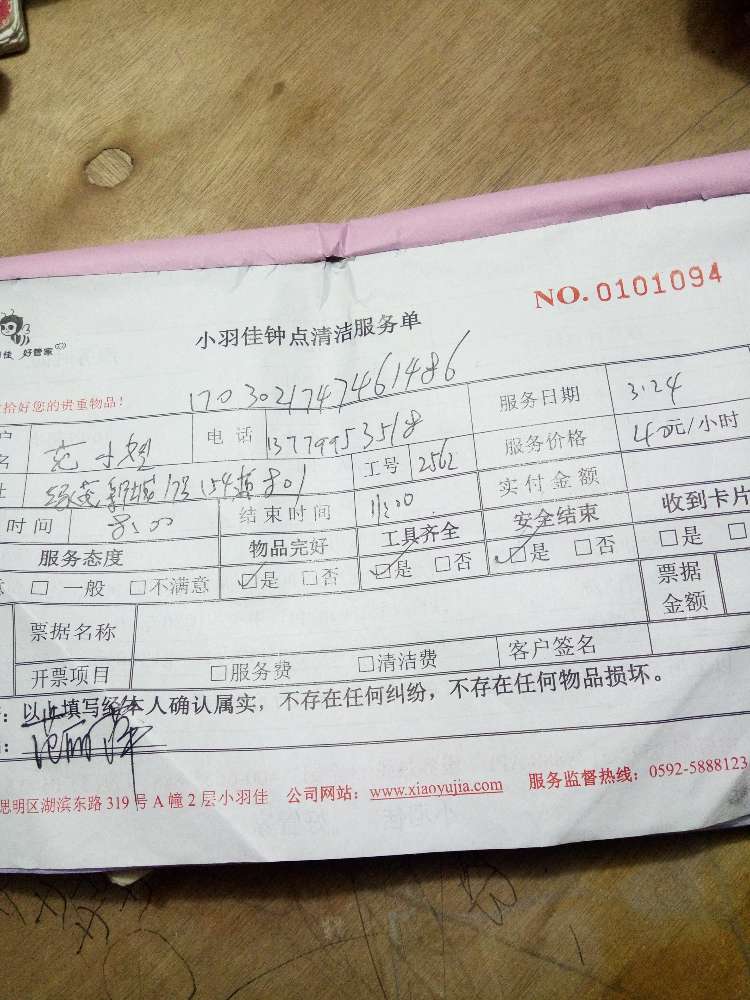 NO. 0101094
小羽佳钟点清洁服务单
佳 好管家
拾好您的贵重物品!
1703021747461486
小姐 电话 13779953518 服务日期 3.24
工号 2562 服务价格 40元/小时
154 801 实付金额
时间 8:00 结束时间 11:00
服务态度 物品完好 工具齐全 安全结束 收到卡片
□一般 □不满意 □是 □否 □是 □否 □是 □否 □是 □
票据名称 票据金额
开票项目 □服务费 □清洁费 客户签名
:以上填写经本人确认属实，不存在任何纠纷，不存在任何物品损坏。
思明区湖滨东路 319 号 A 幢 2 层小羽佳 公司网站：www.xiaoyujia.com 服务监督热线：0592-5888123